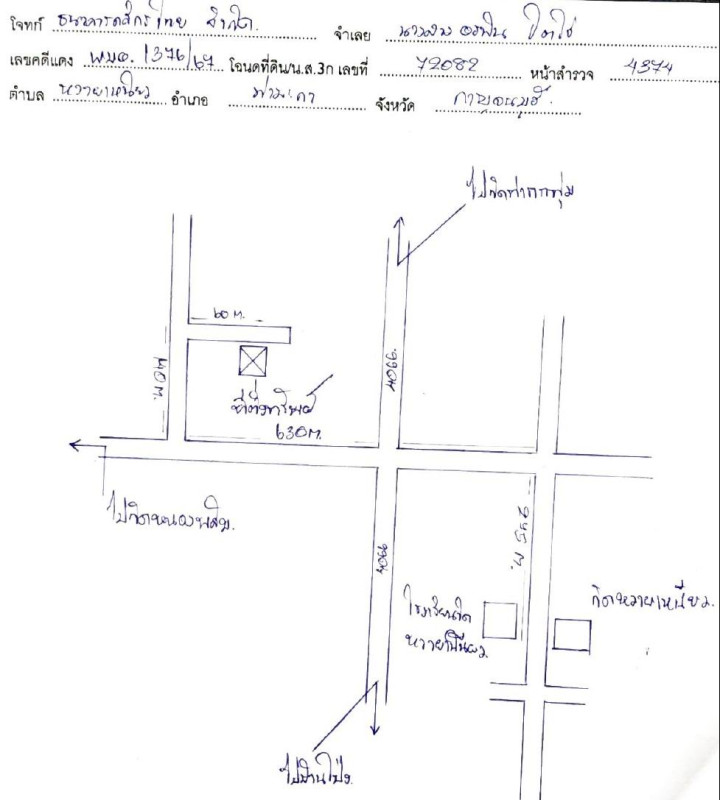 โจทก์ ธนาคารกสิกรไทย จำกัด. จำเลย นางสาว อรพิน
เลขคดีแดง ผบอ. 1376/67 โฉนดที่ดิน/น.ส.3ก เลขที่ 72082 หน้าสำรวจ 4374
ตำบล หวายเหนียว อำเภอ ท่ามะกา จังหวัด กาญจนบุรี
60 ม.
40 ม.
4066
ที่ตั้งทรัพย์
630 ม.
4066
ม.
โรงเรียนวัด
หวายเหนียว
วัดหวายเหนียว
ไปบ้านโป่ง